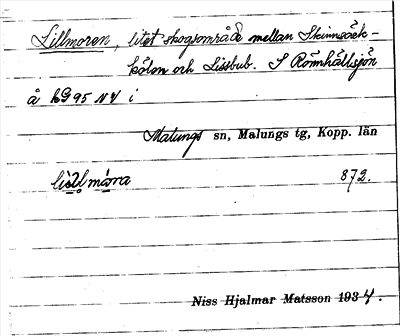 Lillmoren, litet skogsområde mellan Skinnsäck-
kölen och Lissbub. S Römhällsjön
å kG 95 NV i
Malungs sn, Malungs tg, Kopp. län
872.
Niss Hjalmar Matsson 1934.